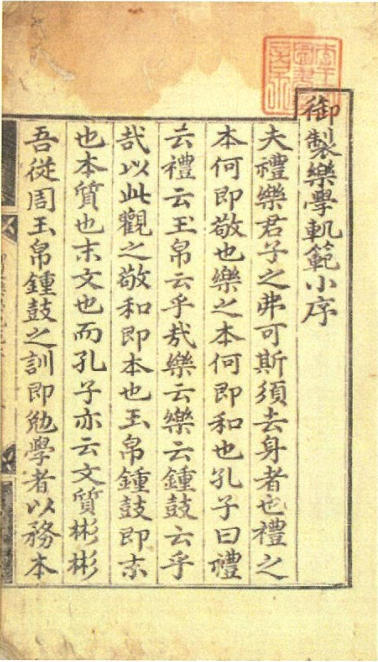 御製樂學軌範小序
夫禮樂君子之弗可斯須去身者也禮之
本何即敬也樂之本何即和也孔子曰禮
云禮云玉帛云乎哉樂云樂云鍾鼓云乎
哉以此觀之敬和即本也玉帛鍾鼓即末
也本質也末文也而孔子亦云文質彬彬
吾從周玉帛鍾鼓之訓即勉學者以務本